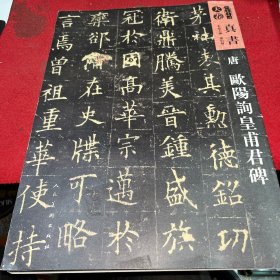 真書
唐 歐陽詢皇甫君碑
茅社表其勳德銘功
衛鼎騰美晉鍾盛族
冠於國高華宗邁於
欒郤備在史牒可略
言焉曾祖重華使持